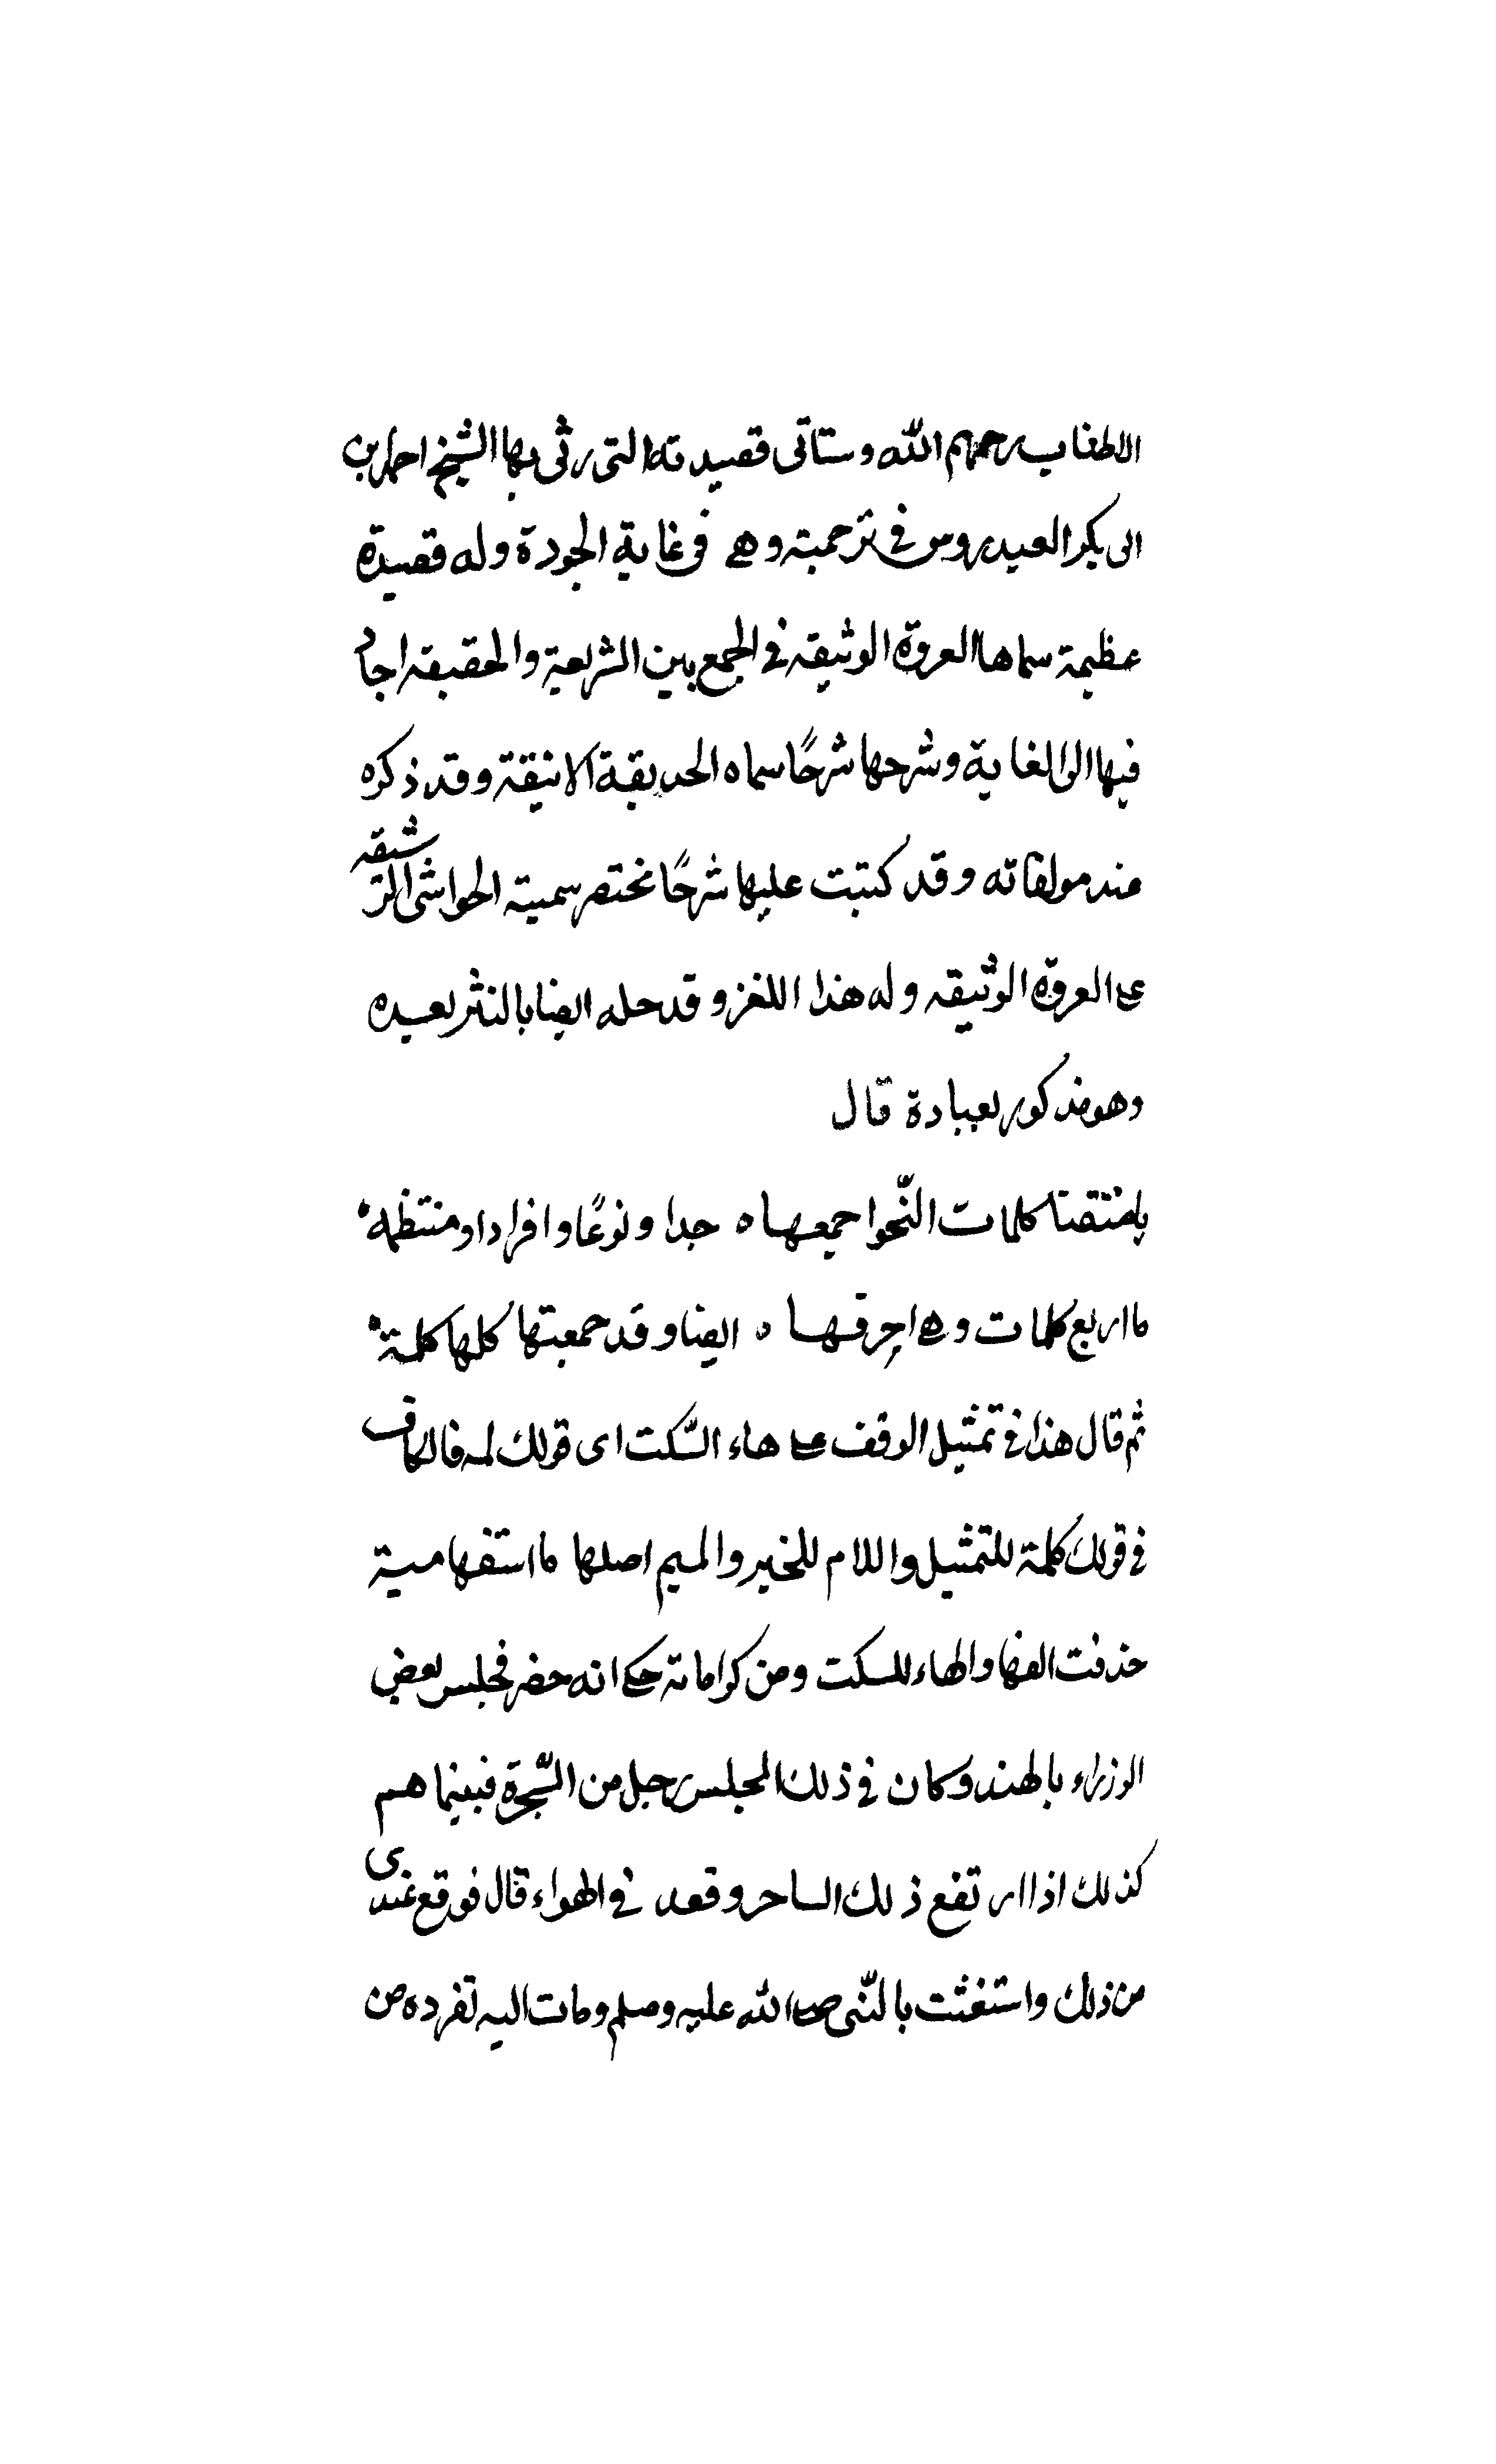 الاطناب رحمهم الله وستاتى قصيدته التى رثى بها الشيخ احمد بن
ابى بكر العيدروس في ترجمته وهي فى غاية الجودة وله قصيدة
عظيمة سماها العروة الوثيقه في الجمع بين الشريعة والحقيقه اجاد
فيها الى الغاية وشرحها شرحًا سماه الحديقة الانيقة وقد ذكره
عند مولفاته وقد كتبت عليها شرحًا مختصر سميته الحواشى الرشيقه
على العروة الوثيقه وله هذا اللغز وقد حله ايضا بالنثر بعيده
وهو مذكور بعبادة قال
يا متقنا كلمات النّحو اجمعها ه حدا ونوعًا وافرادا ومنتظمه
ما اربع كلمات وهي احرفها ه ايضا وقد جمعتها كلها كلمة
ثم قال هذا في تمثيل الوقف على هاء السّكت اى قولك لمه فالكاف
في قولك كلمة للتمثيل واللام للخير والميم اصلها ما استفهامية
حذفت الفها والهاء للسكت ومن كراماته حكي انه حضر مجلس بعض
الوزراء بالهند وكان في ذلك المجلس رجل من السّحرة فبينما هم
كذلك اذا ارتفع ذلك الساحر وقعد في الهواء قال فوقع عندى
من ذلك واستغثت بالنّبى صلى الله عليه وسلم ومات اليه تفرده من